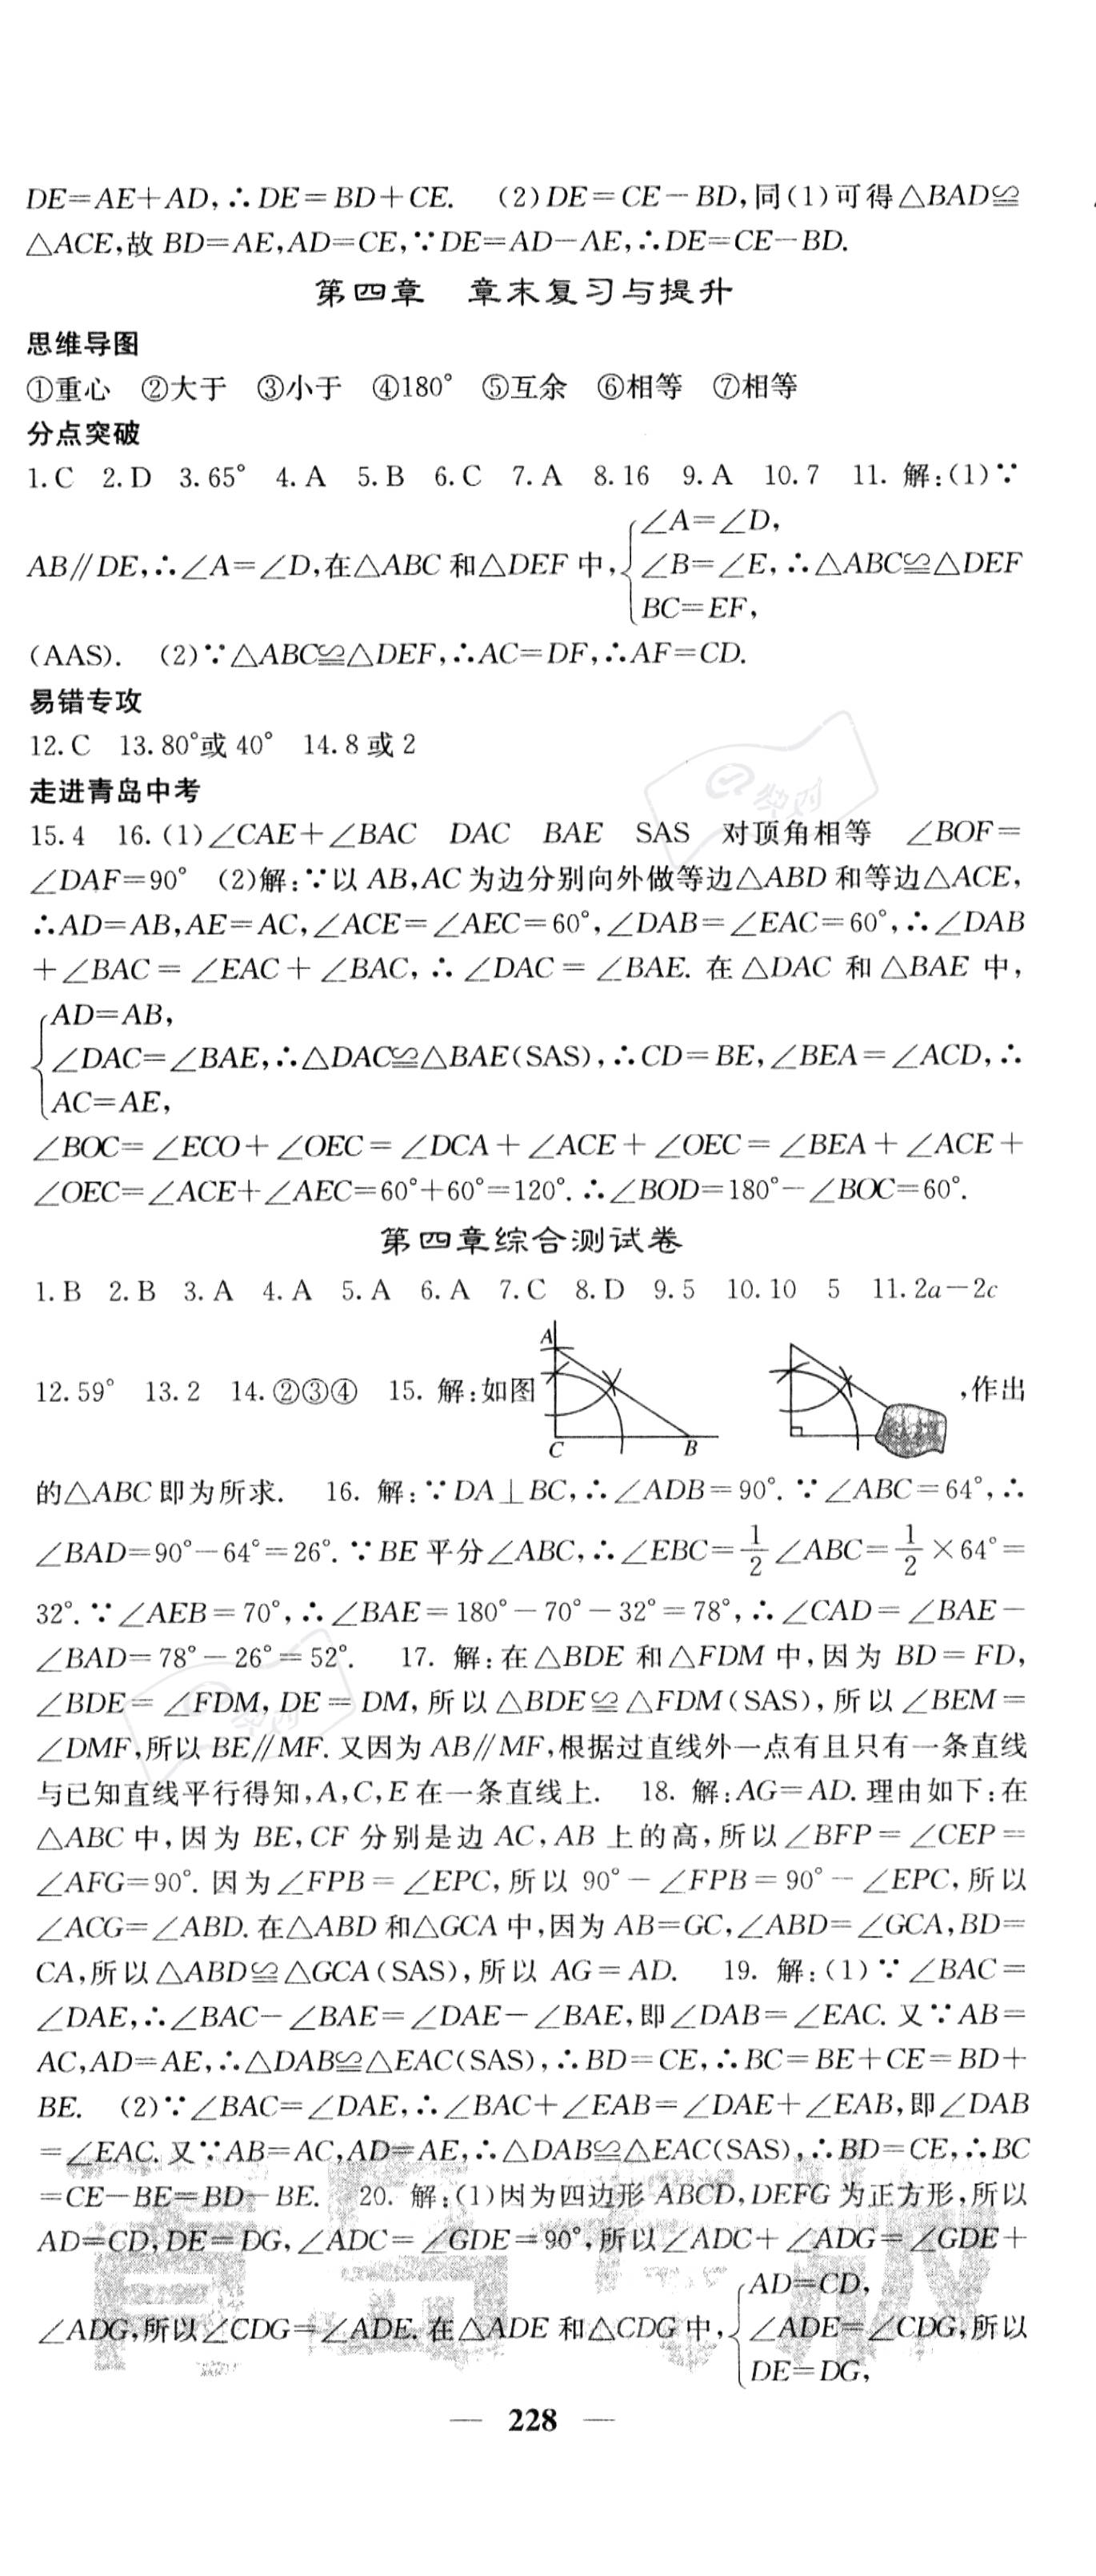 DE=AE+AD,∴DE=BD+CE. (2)DE=CE-BD,同(1)可得△BAD≌
△ACE,故BD=AE,AD=CE,∵DE=AD-AE,∴DE=CE-BD.
第四章 章末复习与提升
思维导图
①重心 ②大于 ③小于 ④180° ⑤互余 ⑥相等 ⑦相等
分点突破
1.C 2.D 3.65° 4.A 5.B 6.C 7.A 8.16 9.A 10.7 11.解:(1)∵
∠A=∠D,
AB∥DE,∴∠A=∠D,在△ABC和△DEF中,{∠B=∠E,∴△ABC≌△DEF
BC=EF,
(AAS). (2)∵△ABC≌△DEF,∴AC=DF,∴AF=CD.
易错专攻
12.C 13.80°或40° 14.8或2
走进青岛中考
15.4 16.(1)∠CAE+∠BAC DAC BAE SAS 对顶角相等 ∠BOF=
∠DAF=90° (2)解:∵以AB,AC为边分别向外做等边△ABD和等边△ACE,
∴AD=AB,AE=AC,∠ACE=∠AEC=60°,∠DAB=∠EAC=60°,∴∠DAB
+∠BAC=∠EAC+∠BAC,∴∠DAC=∠BAE.在△DAC和△BAE中,
AD=AB,
{∠DAC=∠BAE,∴△DAC≌△BAE(SAS),∴CD=BE,∠BEA=∠ACD,∴
AC=AE,
∠BOC=∠ECO+∠OEC=∠DCA+∠ACE+∠OEC=∠BEA+∠ACE+
∠OEC=∠ACE+∠AEC=60°+60°=120°.∴∠BOD=180°-∠BOC=60°.
第四章综合测试卷
1.B 2.B 3.A 4.A 5.A 6.A 7.C 8.D 9.5 10.10 5 11.2a-2c
A
12.59° 13.2 14.②③④ 15.解:如图 ,作出
C B
的△ABC即为所求. 16.解:∵DA⊥BC,∴∠ADB=90°.∵∠ABC=64°,∴
∠BAD=90°-64°=26°.∵BE平分∠ABC,∴∠EBC=1/2∠ABC=1/2×64°=
32°.∵∠AEB=70°,∴∠BAE=180°-70°-32°=78°,∴∠CAD=∠BAE-
∠BAD=78°-26°=52°. 17.解:在△BDE和△FDM中,因为BD=FD,
∠BDE=∠FDM,DE=DM,所以△BDE≌△FDM(SAS),所以∠BEM=
∠DMF,所以BE∥MF.又因为AB∥MF,根据过直线外一点有且只有一条直线
与已知直线平行得知,A,C,E在一条直线上. 18.解:AG=AD.理由如下:在
△ABC中,因为BE,CF分别是边AC,AB上的高,所以∠BFP=∠CEP=
∠AFG=90°.因为∠FPB=∠EPC,所以90°-∠FPB=90°-∠EPC,所以
∠ACG=∠ABD.在△ABD和△GCA中,因为AB=GC,∠ABD=∠GCA,BD=
CA,所以△ABD≌△GCA(SAS),所以AG=AD. 19.解:(1)∵∠BAC=
∠DAE,∴∠BAC-∠BAE=∠DAE-∠BAE,即∠DAB=∠EAC.又∵AB=
AC,AD=AE,∴△DAB≌△EAC(SAS),∴BD=CE,∴BC=BE+CE=BD+
BE. (2)∵∠BAC=∠DAE,∴∠BAC+∠EAB=∠DAE+∠EAB,即∠DAB
=∠EAC.又∵AB=AC,AD=AE,∴△DAB≌△EAC(SAS),∴BD=CE,∴BC
=CE-BE=BD-BE. 20.解:(1)因为四边形ABCD,DEFG为正方形,所以
AD=CD,DE=DG,∠ADC=∠GDE=90°,所以∠ADC+∠ADG=∠GDE+
AD=CD,
∠ADG,所以∠CDG=∠ADE.在△ADE和△CDG中,{∠ADE=∠CDG,所以
DE=DG,
— 228 —